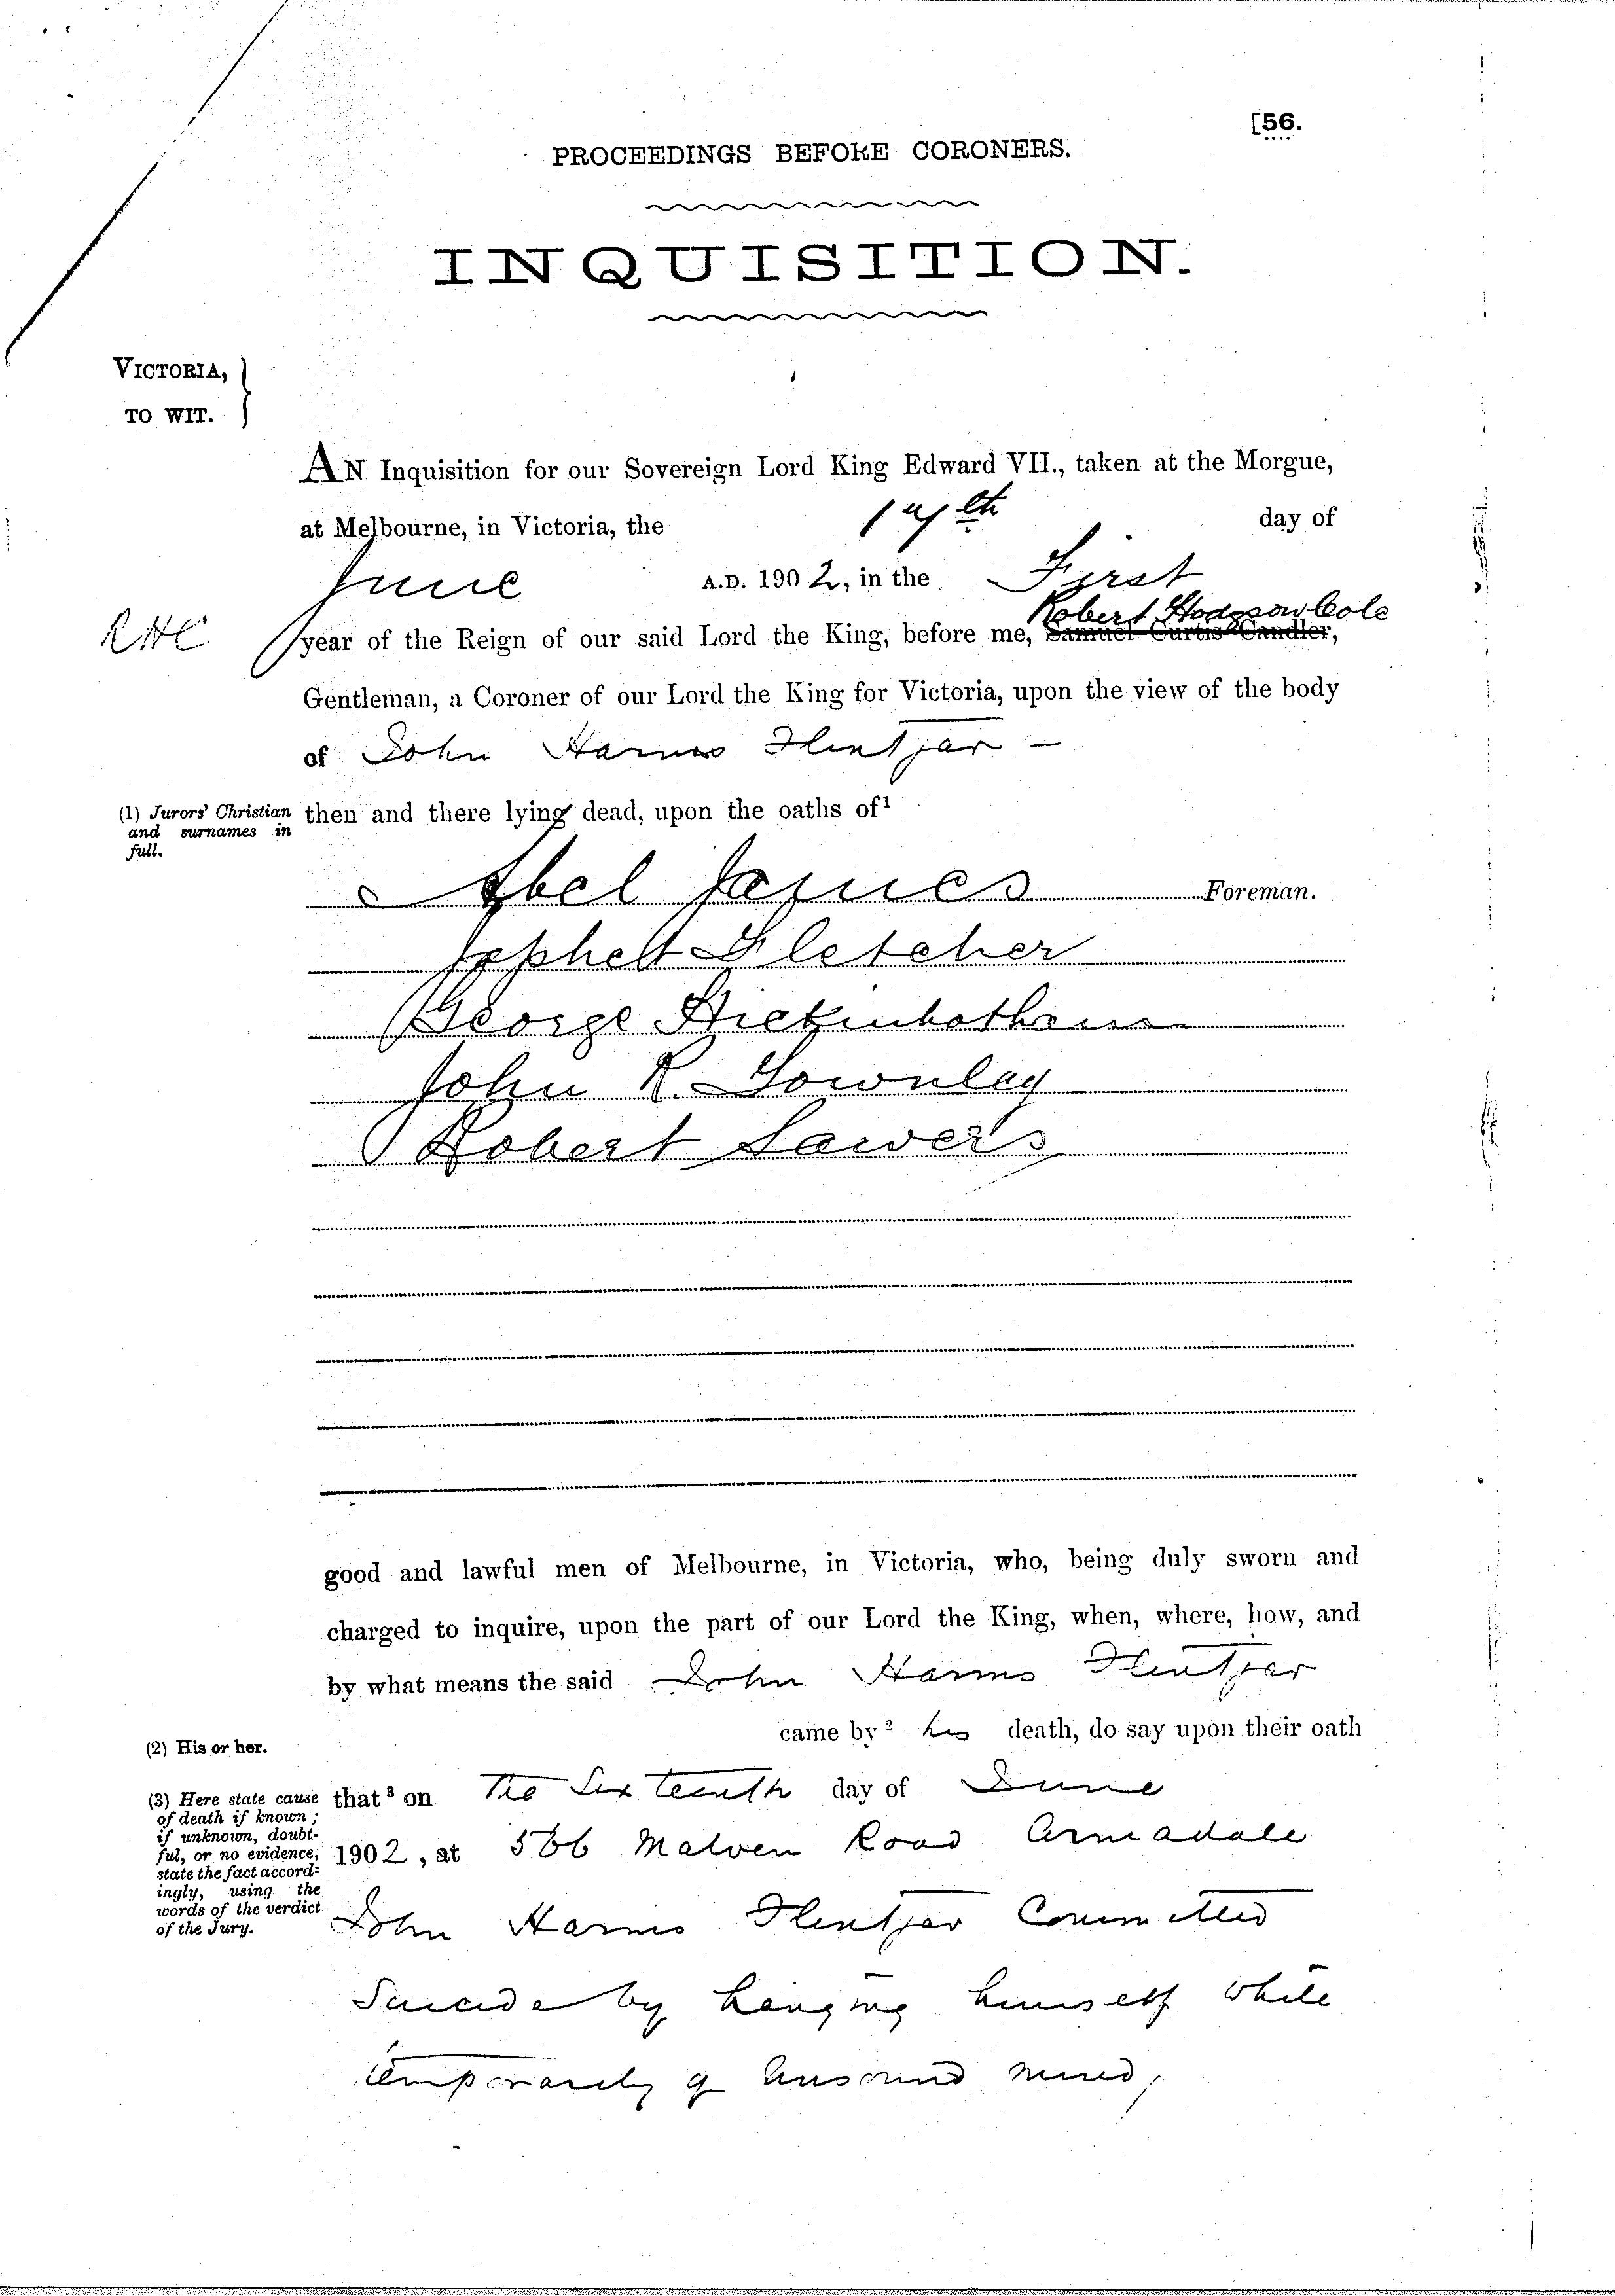 [56.
PROCEEDINGS BEFORE CORONERS.
INQUISITION.
VICTORIA,
TO WIT.
AN Inquisition for our Sovereign Lord King Edward VII., taken at the Morgue,
at Melbourne, in Victoria, the 17th day of
June A.D. 1902, in the First
Robert Hodgson Cole
RHC year of the Reign of our said Lord the King, before me, Samuel Curtis Candler,
Gentleman, a Coroner of our Lord the King for Victoria, upon the view of the body
of John Harms
(1) Jurors' Christian and surnames in full.
then and there lying dead, upon the oaths of1
Abel James Foreman.
Japhett Fletcher
George Hickinbotham
John R. Townley
Robert Sawers
good and lawful men of Melbourne, in Victoria, who, being duly sworn and
charged to inquire, upon the part of our Lord the King, when, where, how, and
by what means the said John Harms
came by2 his death, do say upon their oath
(2) His or her.
(3) Here state cause of death if known; if unknown, doubtful, or no evidence, state the fact accordingly, using the words of the verdict of the Jury.
that3 on The Sixteenth day of June
1902, at Malvern Road Armadale
John Harms Committed
Suicide by hanging himself while
temporarily of unsound mind,